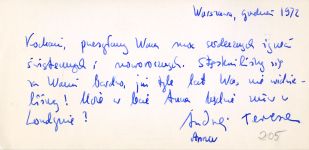 Warszawa, grudzień 1972
Kochani, przesyłamy Wam moc serdecznych życzeń
świątecznych i noworocznych. Stęskniliśmy się
za Wami bardzo, już tyle lat Was nie widzie-
liśmy! Może w lecie Anna będzie znów w
Londynie?
Andrzej Teresa
Anna
205